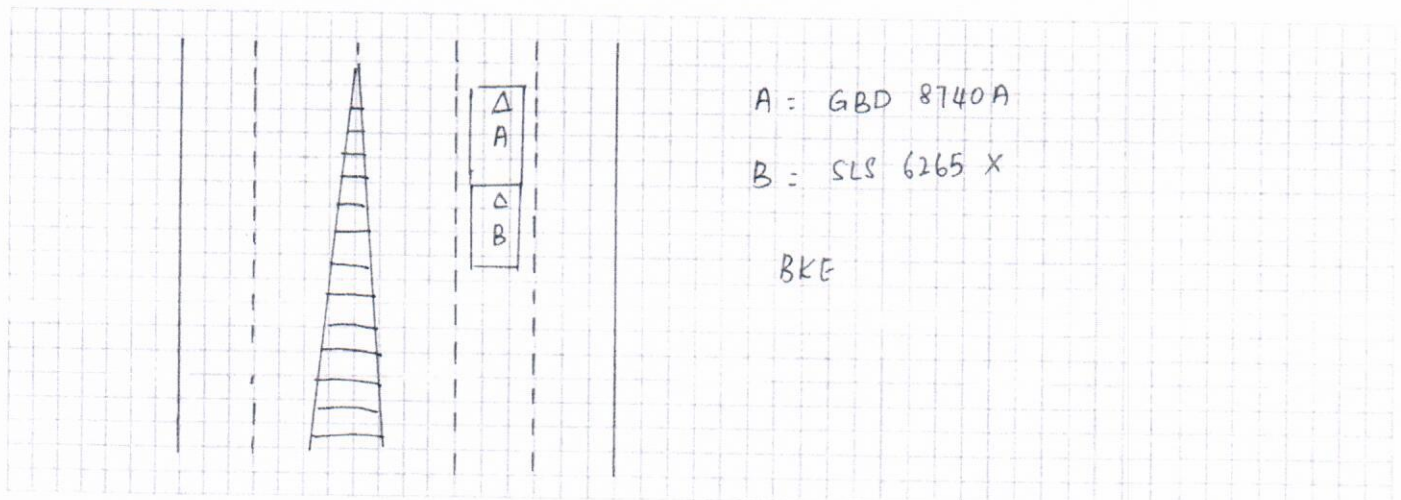 A
B
A = GBD 8740A
B = SLS 6265 X
BKE